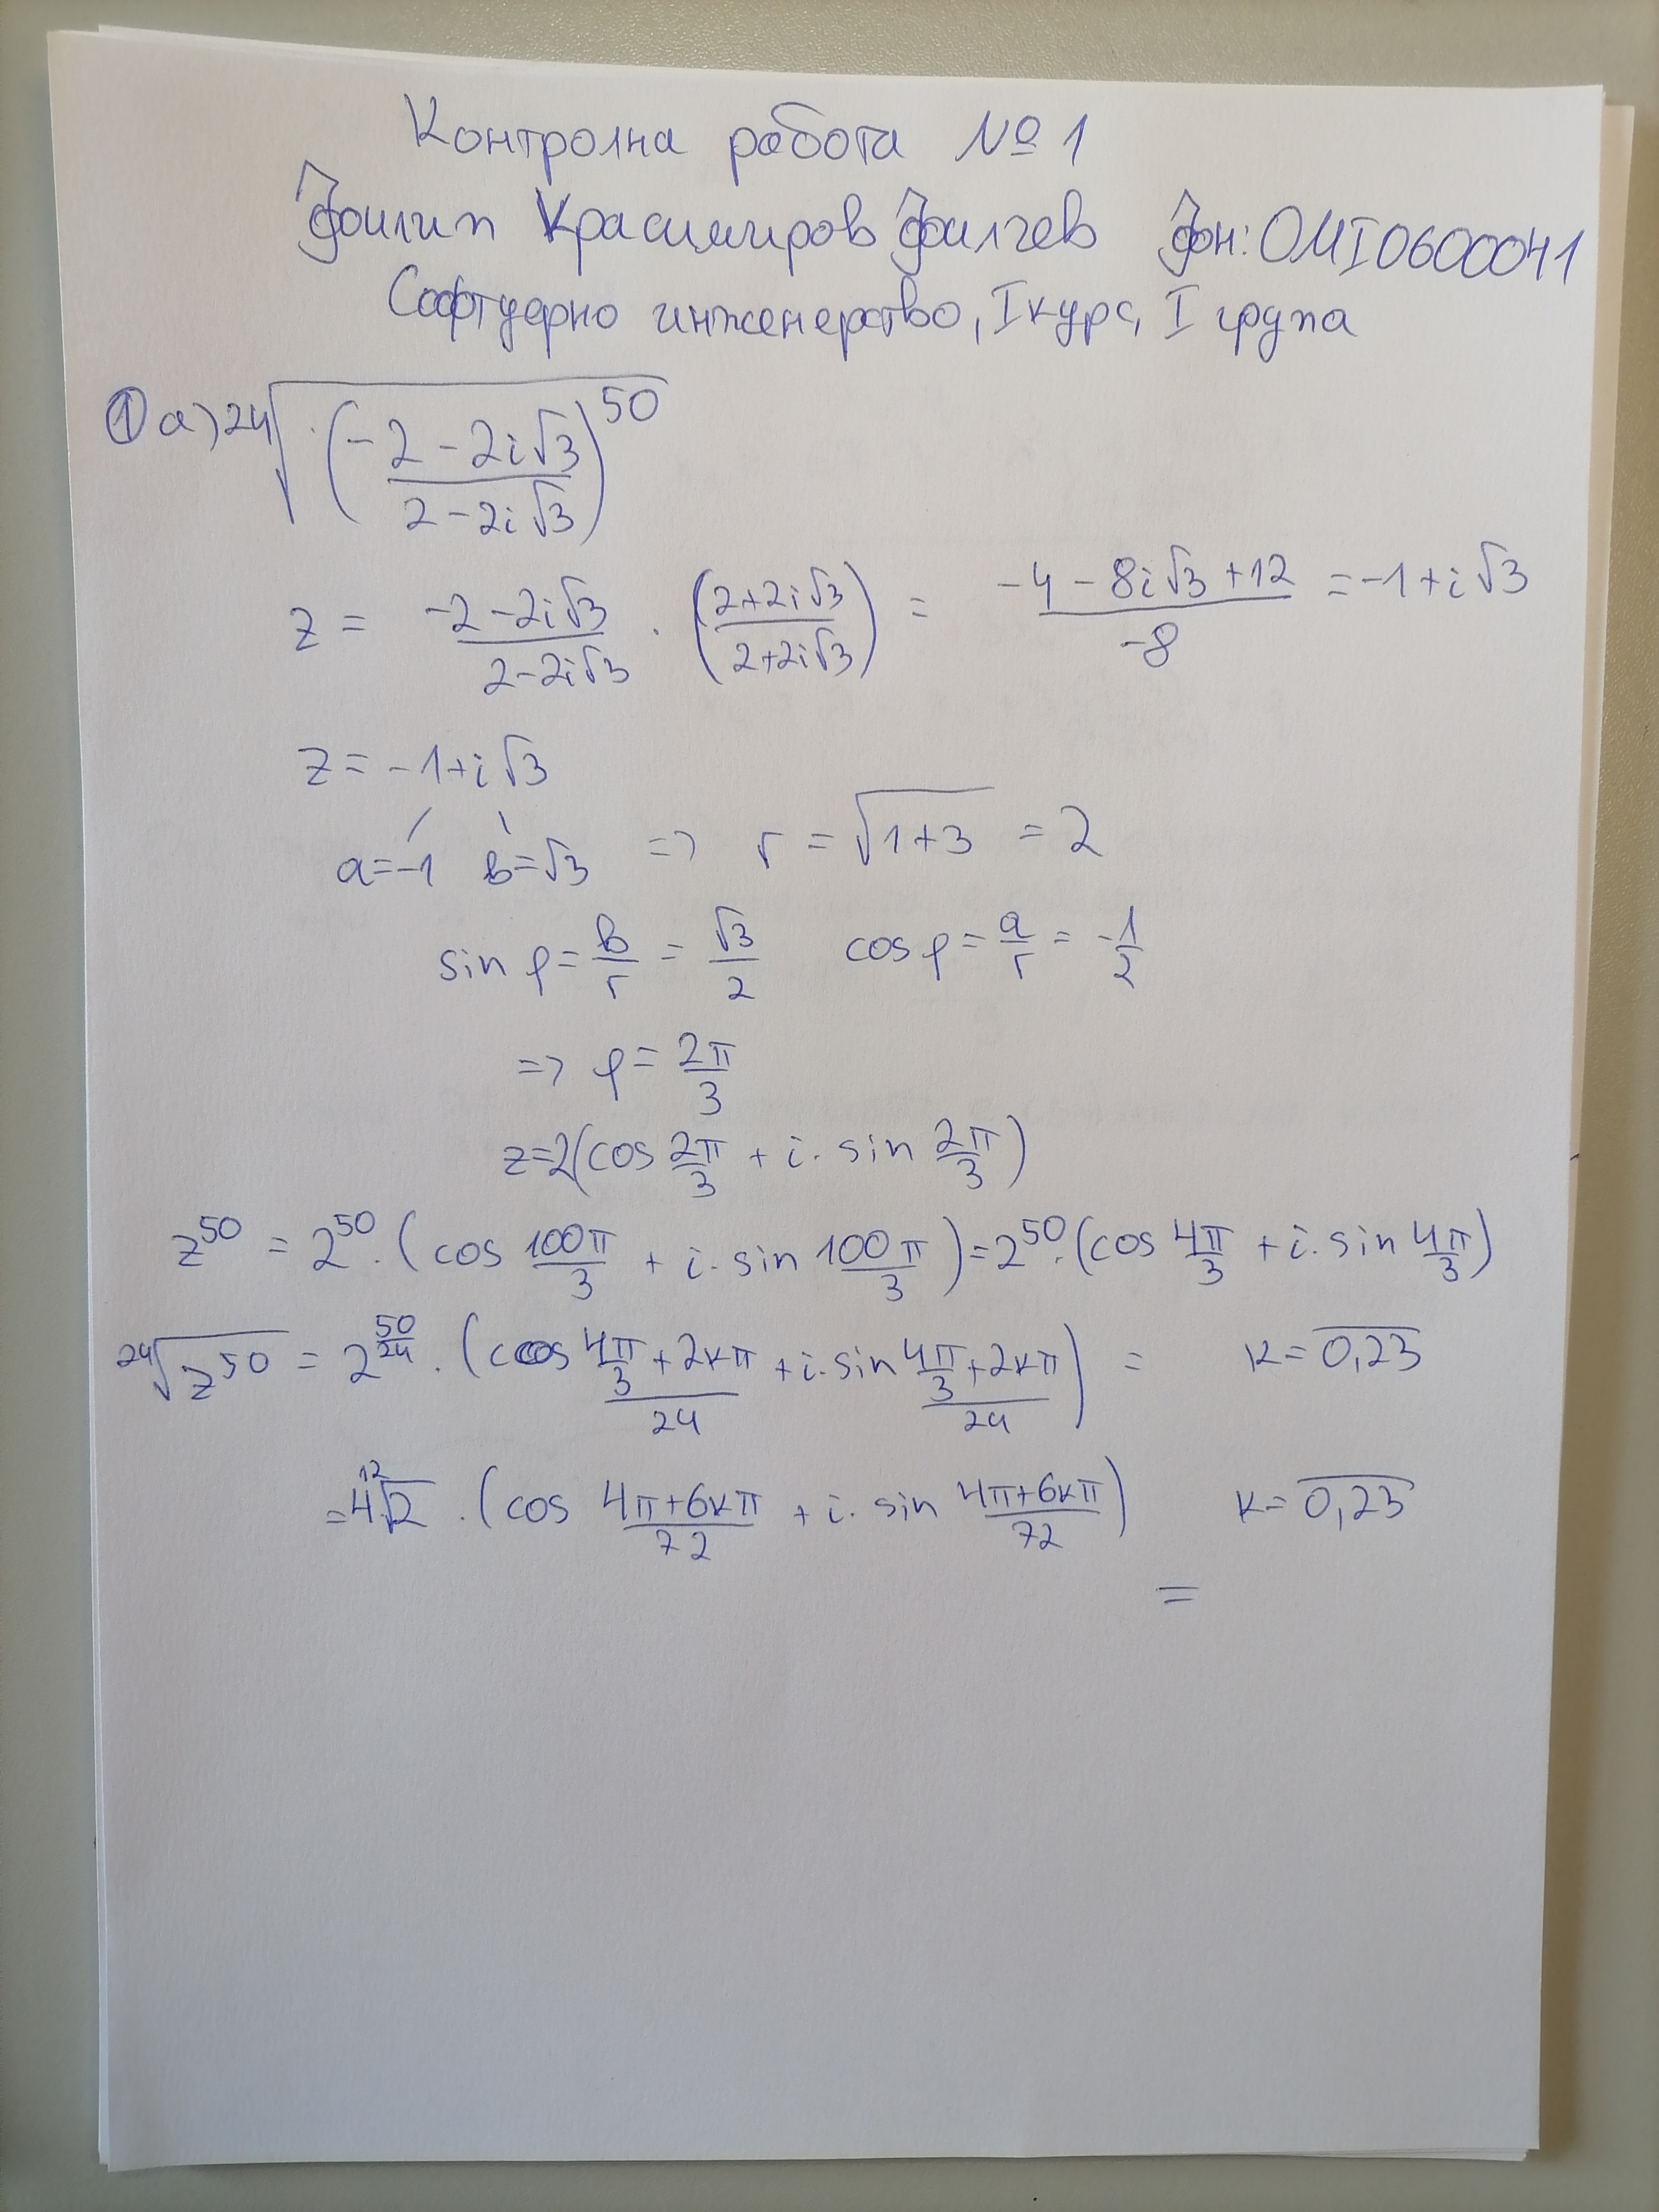 Контролна работа № 1
Филип Красимиров Филчев Фн: 0MI0600041
Софтуерно инженерство, I курс, I група
① а) ²⁴√((-2-2i√3)/(2-2i√3))⁵⁰
z = (-2-2i√3)/(2-2i√3) · ((2+2i√3)/(2+2i√3)) = (-4-8i√3+12)/(-8) = -1+i√3
z = -1+i√3
a=-1 b=√3 => r = √(1+3) = 2
sin φ = b/r = √3/2 cos φ = a/r = -1/2
=> φ = 2π/3
z=2(cos 2π/3 + i. sin 2π/3)
z⁵⁰ = 2⁵⁰.(cos 100π/3 + i. sin 100π/3) = 2⁵⁰.(cos 4π/3 + i. sin 4π/3)
²⁴√z⁵⁰ = 2^(50/24) . (cos (4π/3+2kπ)/24 + i. sin (4π/3+2kπ)/24) = k=0,23
= 4 ¹²√2 . (cos (4π+6kπ)/72 + i. sin (4π+6kπ)/72) k=0,23
=